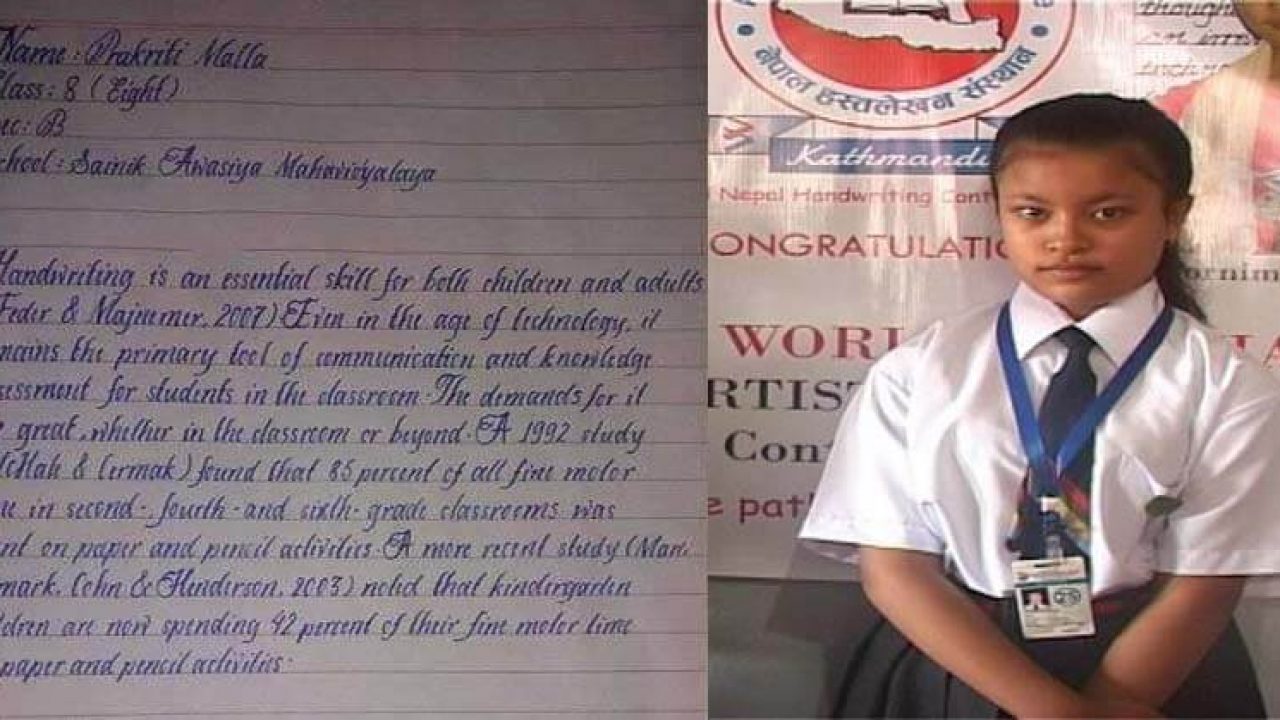 Name : Prakriti Malla
lass : 8 (Eight)
ec : B
chool : Sainik Awasiya Mahavidyalaya
Handwriting is an essential skill for both children and adults
Feder & Majnemer, 2007) Even in the age of technology, it
mains the primary tool of communication and knowledge
sessment for students in the classroom. The demands for it
e great, whether in the classroom or beyond. A 1992 study
McHale & Cermak) found that 85 percent of all fine motor
me in second-, fourth-and sixth-grade classrooms was
ent on paper and pencil activities. A more recent study (Marr,
rmark, Cohn & Henderson, 2003) noted that kindergarten
ldren are now spending 42 percent of their fine motor time
paper and pencil activities.
नेपाल हस्तलेखन संस्थान
Kathmandu
Nepal Handwriting Cont
ONGRATULATIO
WORL
RTIS
Con
e pat
thought